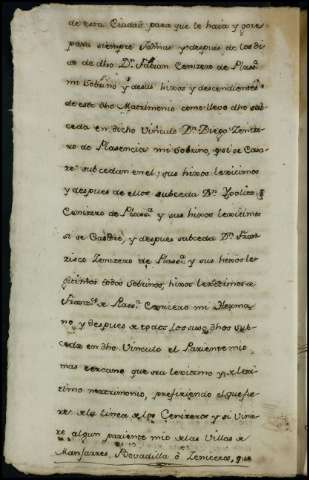 de esta Ciudad para que le haia y goze
para siempre Jamas y despues de los di
as de dho Dn. Fabian Cenizero de Plasa.
mi Sobrino y de sus hixos y descendientes
de este dho Matrimonio como llevo dho sub
ceda en dicho Vinculo Dn. Diego Zeni
zero de Plasencia mi Sobrino, y si se Casa
re subcedan en el; sus hixos lexitimos
y despues de ellos subceda Dn. Ypolito
Cenizero de Plasa. y sus hixos lexitimos
si se Casare, y despues subceda Dn. Fran
zisco Zenizero de Plasa. y sus hixos le
gitimos todos sobrinos, hixos lexitimos de
Franco. de Plasa. Cenizero mi Herma
no, y despues de todos los suso dhos sub
ceda en dho Vinculo el Pariente mio
mas cercano que sea lexitimo y de lexi
timo matrimonio, prefiriendo el que fie
re de la linea de los Cenizeros y si Vinie
re algun pariente mio de las Villas de
Manjarres, Bovadilla ô Zeniceros, que